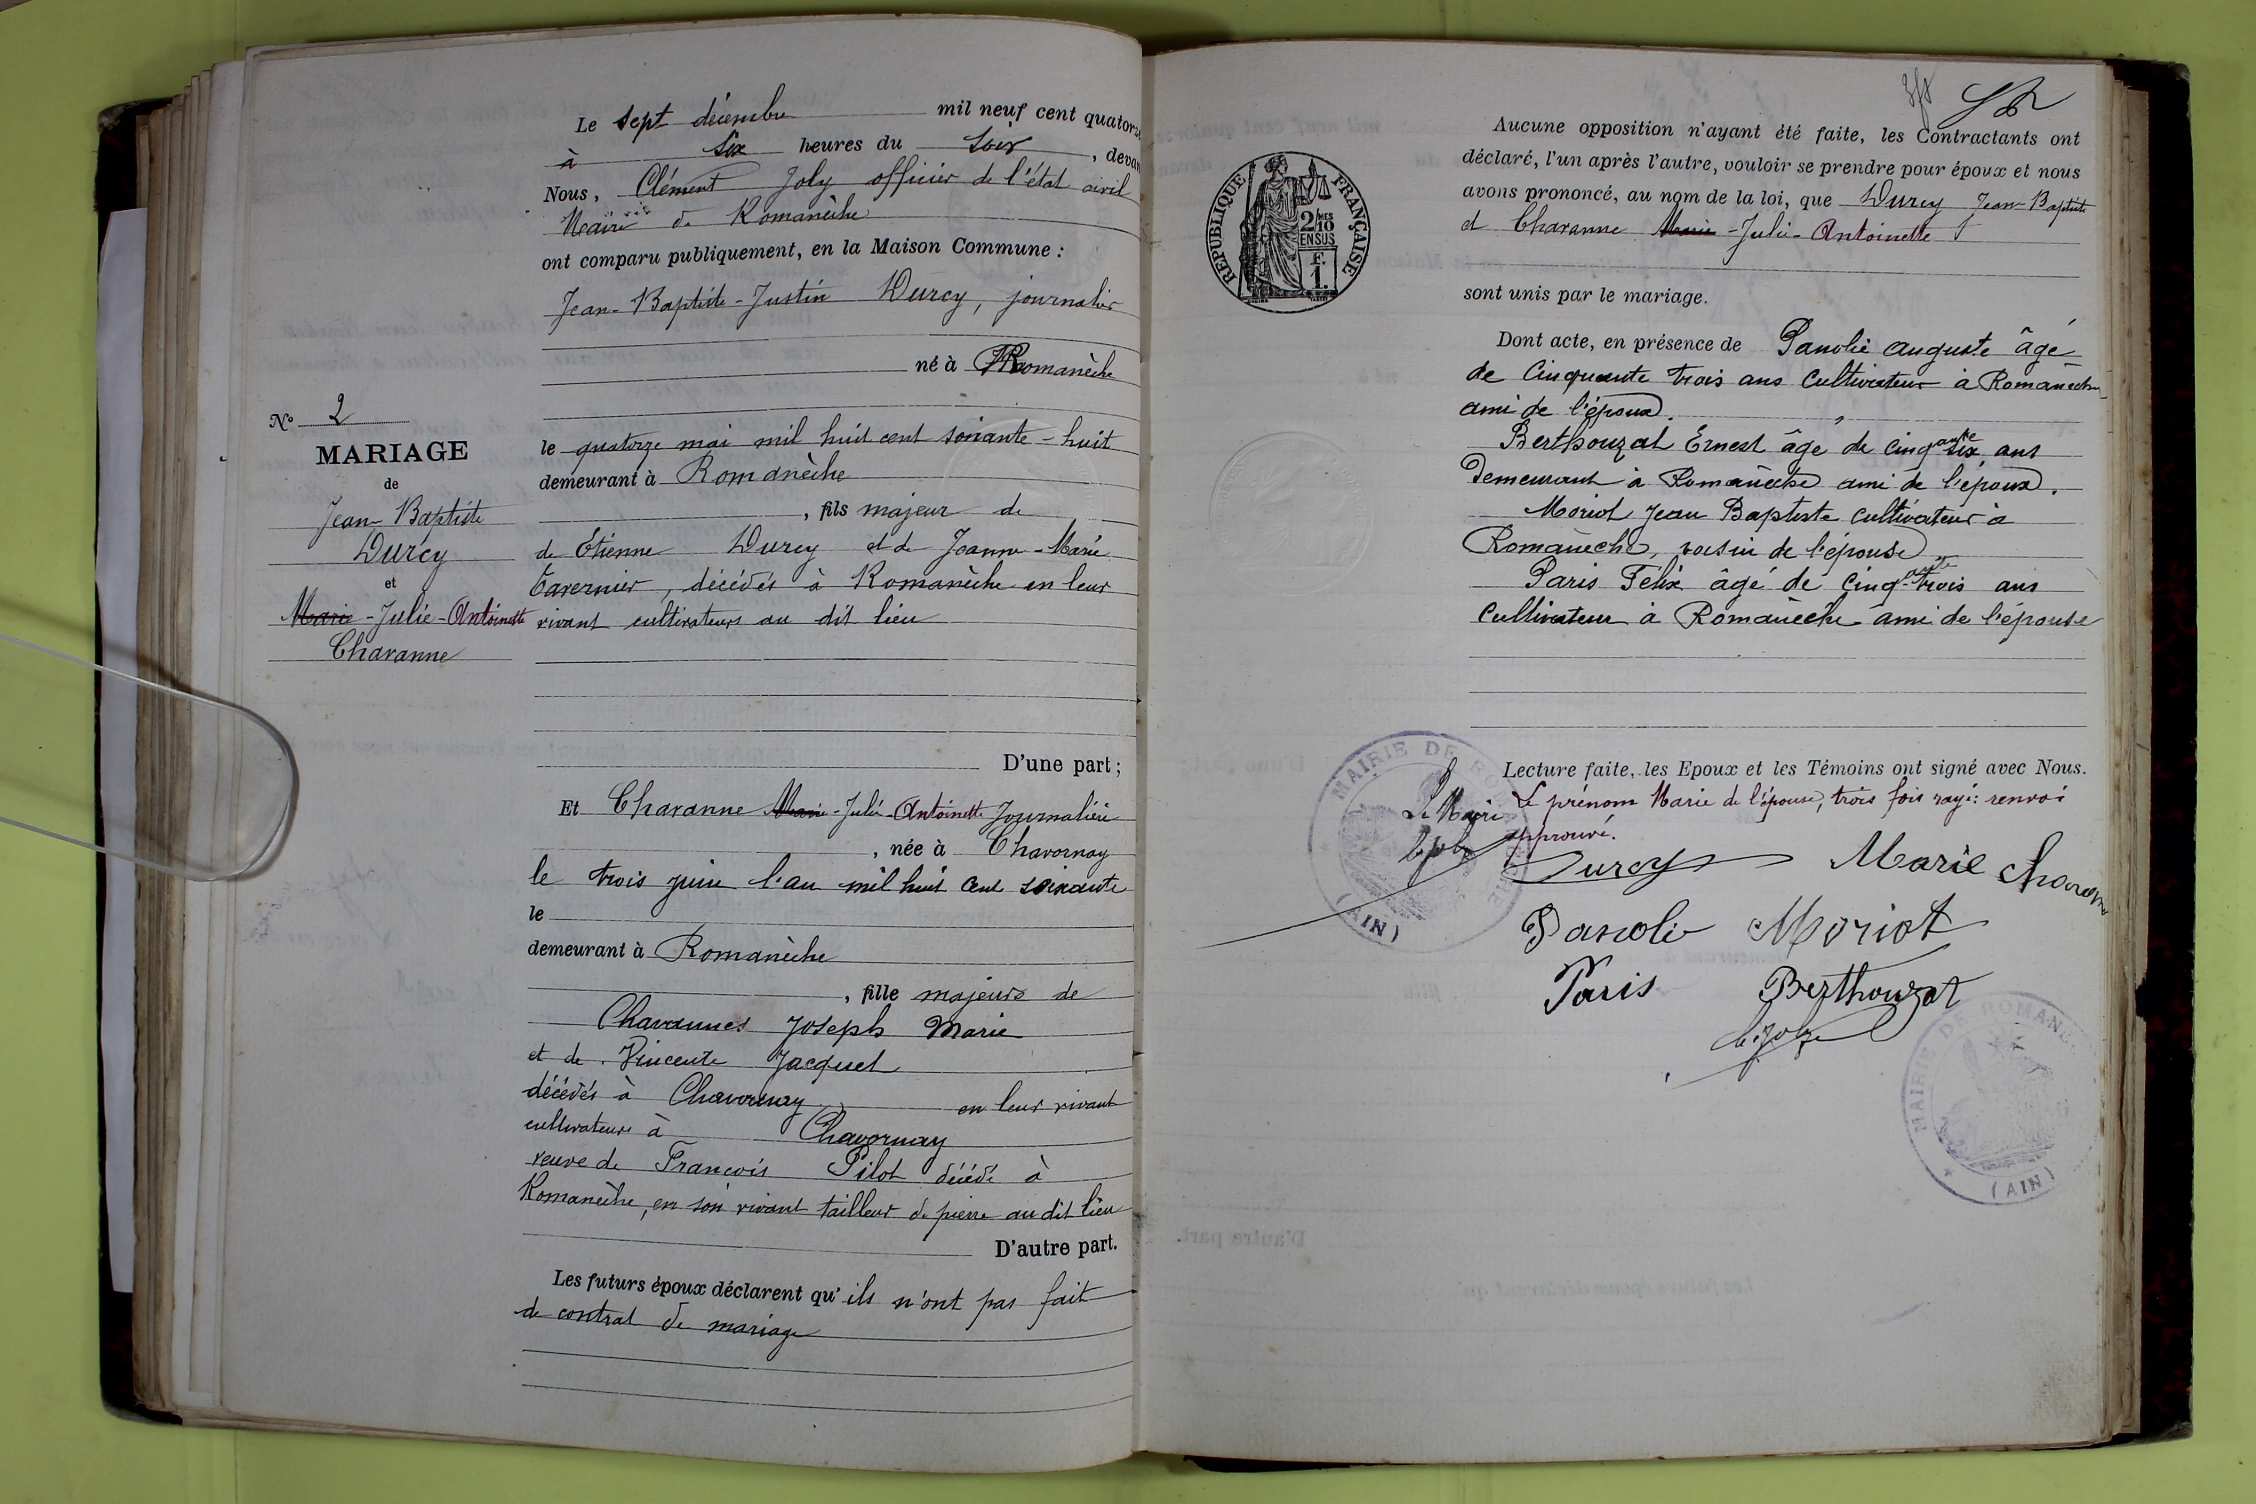 Le sept décembre mil neuf cent quatorze
à six heures du soir, devant
Nous, Clément Joly officier de l'état civil
Maire de Romanèche
ont comparu publiquement, en la Maison Commune :
Jean-Baptiste-Justin Durcy, journalier
né à Romanèche
le quatorze mai mil huit cent soixante-huit
demeurant à Romanèche
, fils majeur de
de Etienne Durcy et de Jeanne-Marie
Tavernier, décédés à Romanèche en leur
vivant cultivateurs au dit lieu
D'une part ;
Et Charanne Marie-Julie-Antoinette Journalière
, née à Chavornay
le trois juin l'an mil huit cent soixante
le
demeurant à Romanèche
, fille majeure de
Chavannes Joseph Marie
et de Vincente Jacquet
décédés à Chavornay en leur vivant
cultivateurs à Chavornay
veuve de François Pilot décédé à
Romanèche, en son vivant tailleur de pierre au dit lieu
D'autre part.
Les futurs époux déclarent qu'ils n'ont pas fait
de contrat de mariage
N° 2
MARIAGE
de
Jean-Baptiste
Durcy
et
Marie-Julie-Antoinette
Charanne
Aucune opposition n'ayant été faite, les Contractants ont
déclaré, l'un après l'autre, vouloir se prendre pour époux et nous
avons prononcé, au nom de la loi, que Durcy Jean-Baptiste
et Charanne Marie-Julie-Antoinette
sont unis par le mariage.
Dont acte, en présence de Panolie auguste âgé
de Cinquante trois ans Cultivateur à Romanèche
ami de l'époux.
Berthouzat Ernest âge de cinquante six ans
Demeurant à Romanèche ami de l'époux.
Moriot Jean Baptiste cultivateur à
Romanèche, voisin de l'épouse
Paris Félix âgé de Cinquante-trois ans
Cultivateur à Romanèche ami de l'épouse
Lecture faite, les Epoux et les Témoins ont signé avec Nous.
Le prénom Marie de l'épouse, trois fois rayé: renvoi
approuvé.
Le Maire
C. Joly
Durcy Marie Charanne
Panolie Moriot
Paris Berthouzat
C. Joly
RÉPUBLIQUE FRANÇAISE
2/10 MES
EN SUS
F.
1.
MAIRIE DE ROMANÈCHE
(AIN)
MAIRIE DE ROMANÈ
(AIN)